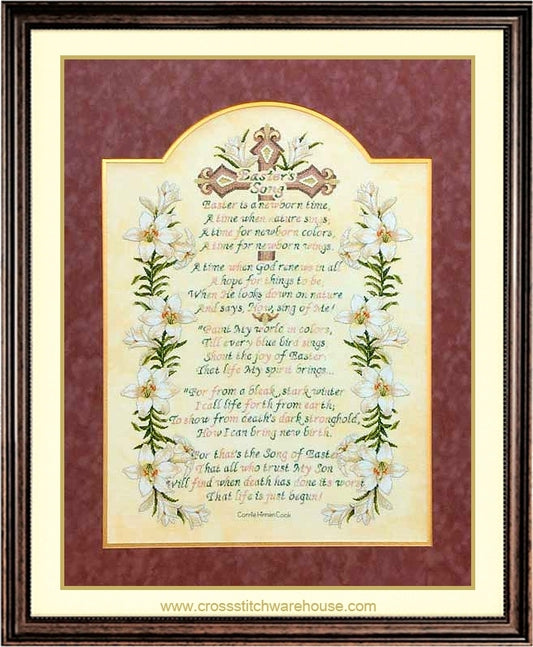 Easter's
Song
Easter is a newborn time,
A time when nature sings,
A time for newborn colors,
A time for newborn wings.
A time when God renews in all
A hope for things to be,
When He looks down on nature
And says, Now, sing of Me!
"Paint My world in colors,
Till every blue bird sings
Shout the joy of Easter
That life My spirit brings...
"For from a bleak, stark winter
I call life forth from earth;
To show from death's dark stronghold,
How I can bring new birth.
For that's the Song of Easter
That all who trust My Son
Will find when death has done its worst
That life is just begun!
Cook
www.crossstitchwarehouse.com